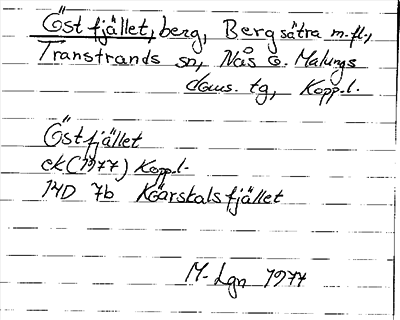 Östfjället, berg, Bergsätra m.fl.,
Transtrands sn, Nås o. Malungs
doms. tg, Kopp.l.
Östfjället
ek (1977) Kopp.l.
14D 7b Köarskalsfjället
M. Lgn 1977